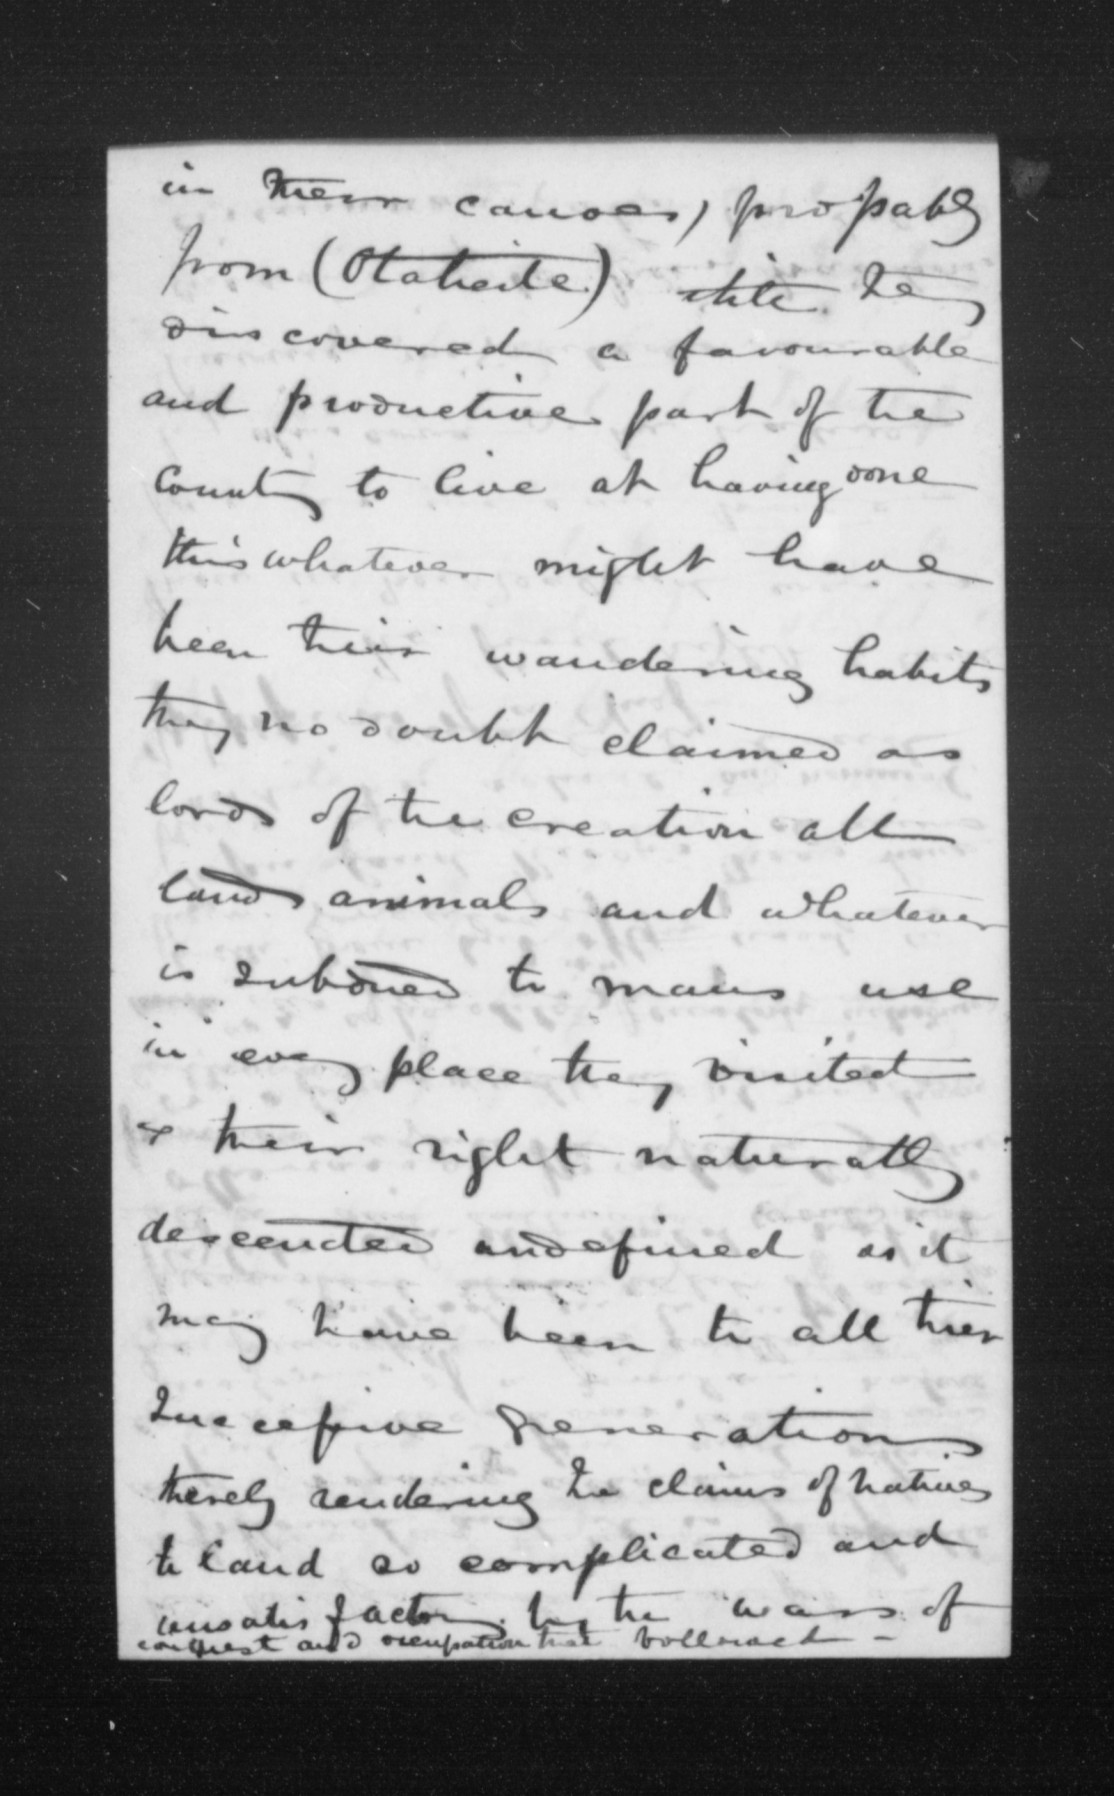 in their canoes, propably
from (Otaheite) till they
discovered a favourable
and productive part of the
country to live at having done
this whatever might have
been their wandering habits
they no doubt claimed as
lords of the creation all
lands animals and whatever
is subdued to mans use
in every place they visited
& their right naturally
descended undefined as it
may have been to all their
Successive generations
therely rendering the claims of natives
to land so complicated and
unsatisfactory by the wars of
conquest and occupation that